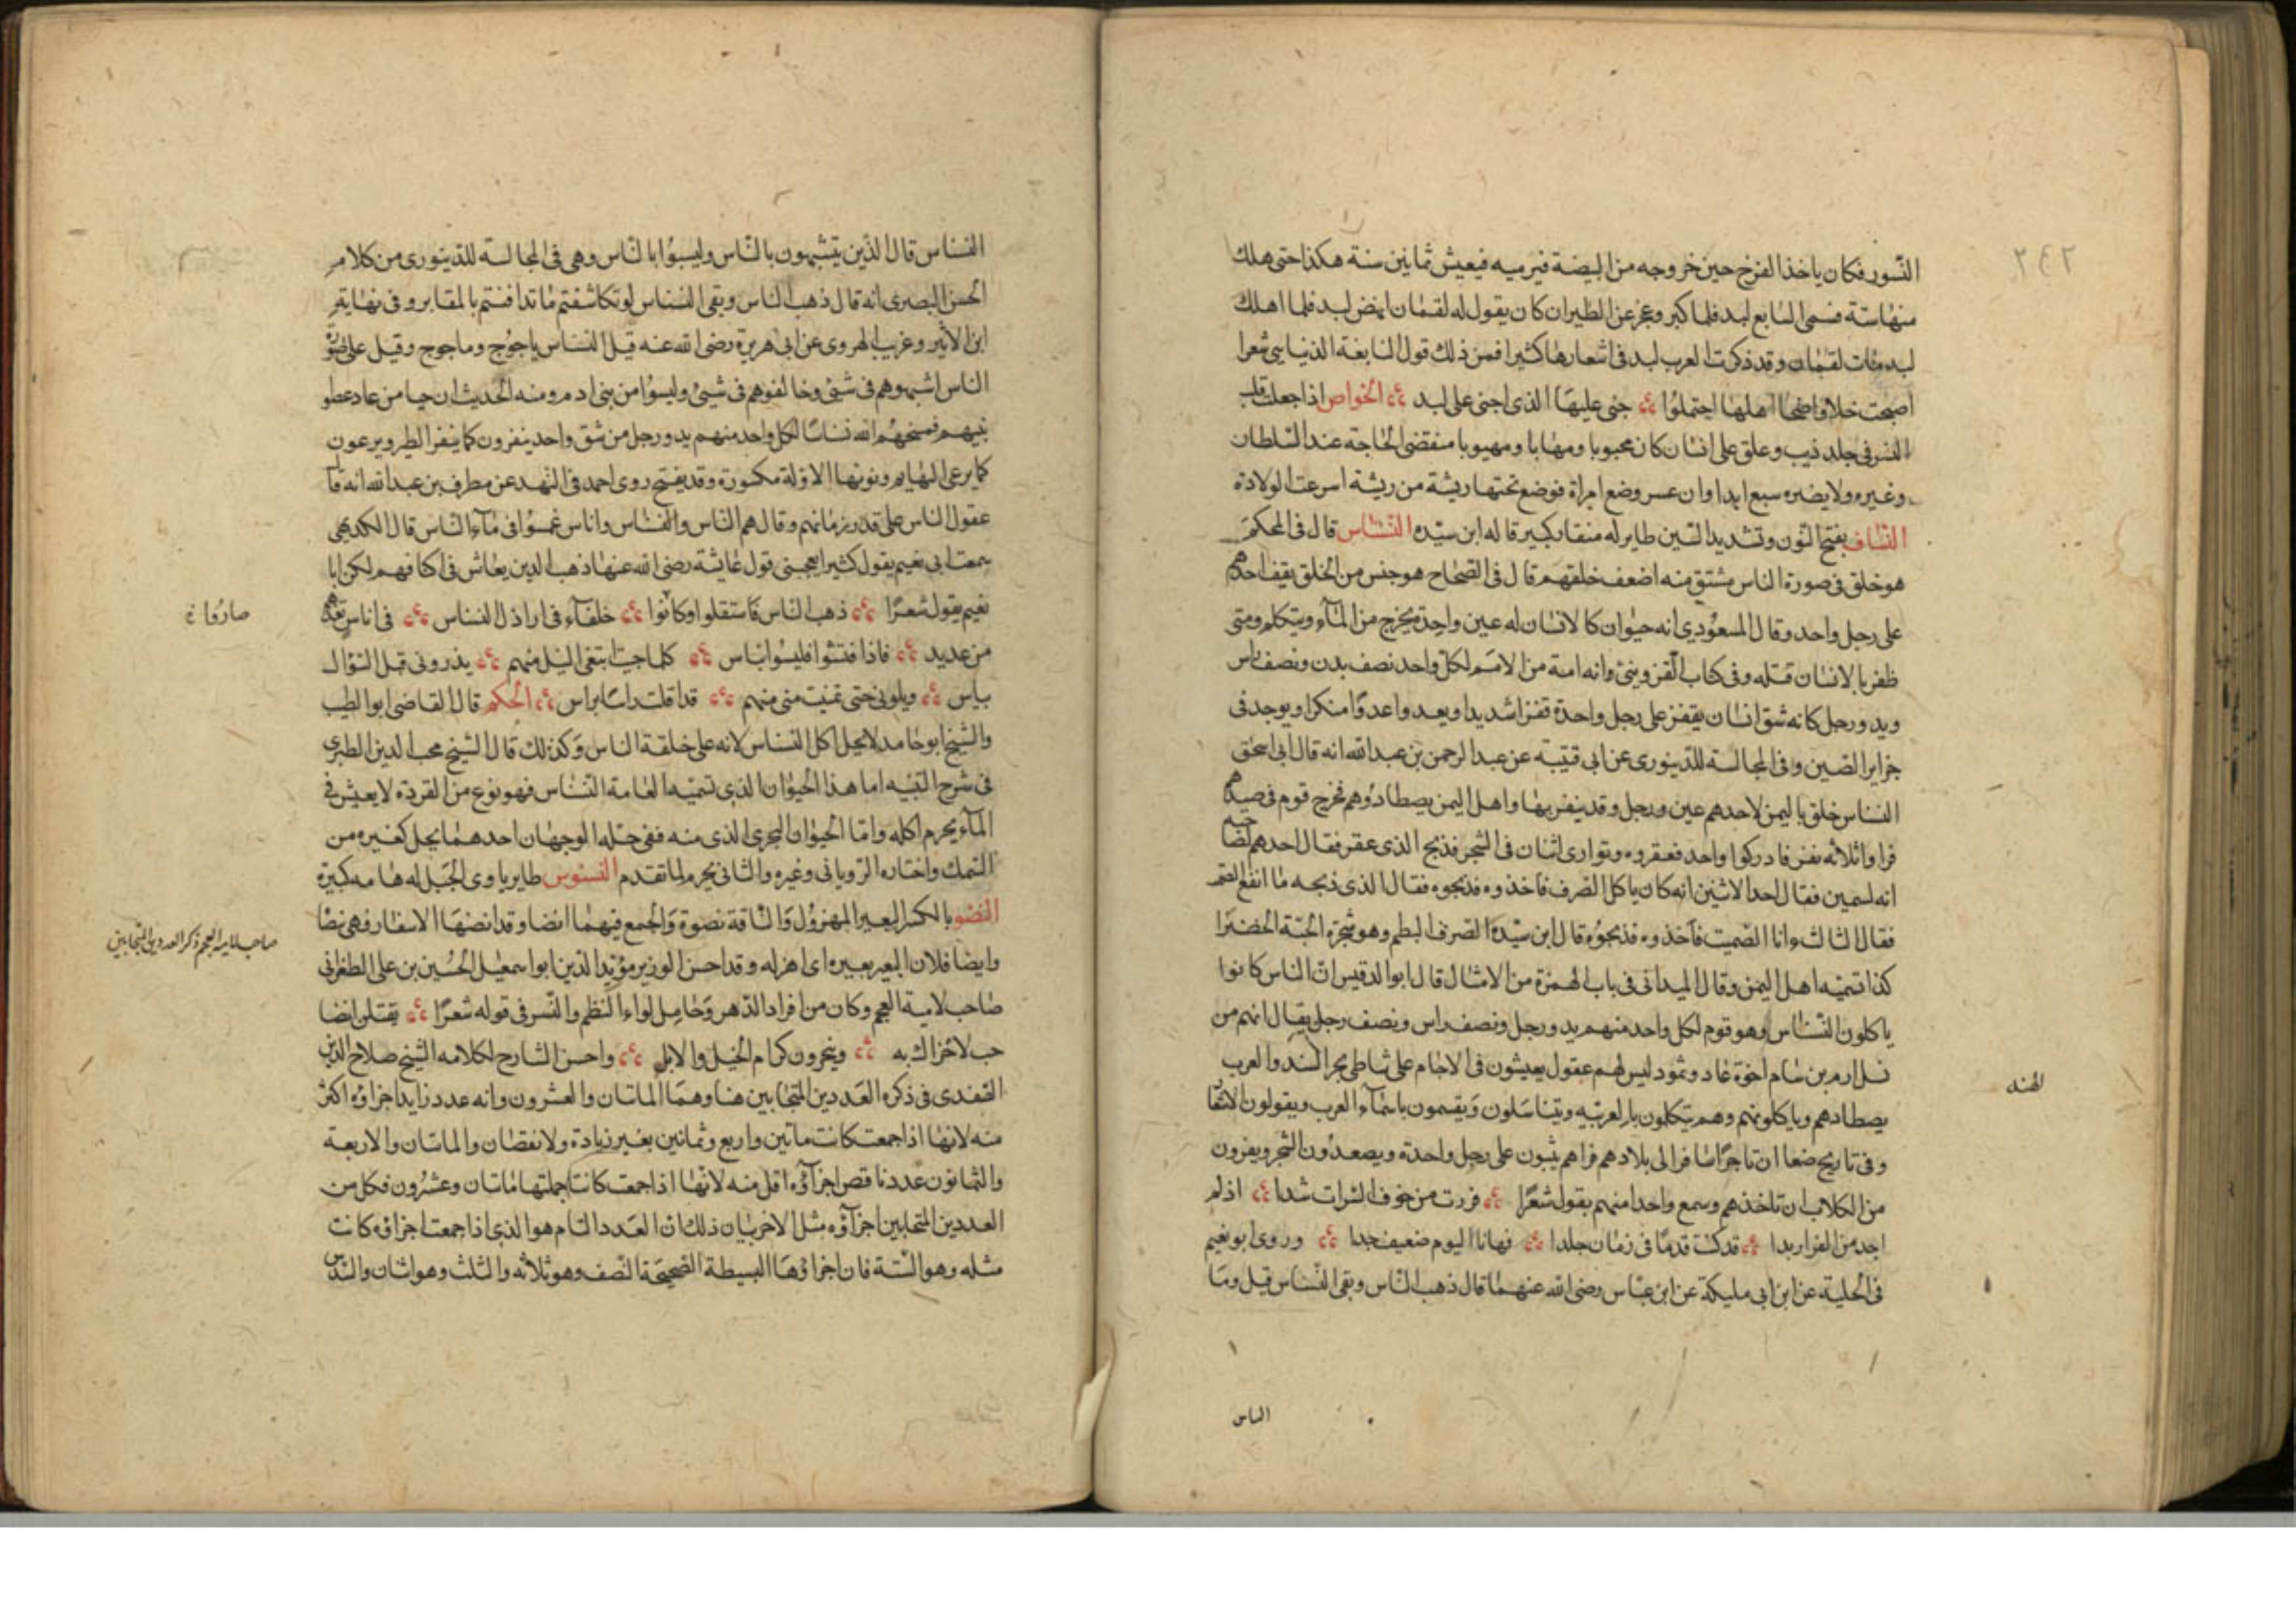 ٢٤٢
النسور فكان ياخذ الفرخ حين خروجه من البيضة فيربيه فيعيش ثمانين سنة هكذا حتى هلك
منها ستة فسمى السابع لبد فلما كبر وعجز عن الطيران كان يقول له لقمان انهض لبد فلما اهلك
لبد مات لقمان وقد ذكرت العرب لبد في اشعارها كثيرا فمن ذلك قول النابغة الذبياني شعرا
اصبحت خلا واضحا اهلها احتملوا جنى عليها الذى اجنى على لبد الخواص اذا جعلت قلب
النسر في جلد ذيب وعلق على انسان كان محبوبا ومهابا ومهيوبا منقضى الحاجة عند السلطان
وغيره ولا يضره سبع ابدا وان عسر وضع امراة فوضع تحتها ريشة من ريشه اسرعت الولادة
النساف بفتح النون وتشديد السين طاير له منقار كبير قاله ابن سيده النسناس قال في المحكم
هو خلق في صورة الناس مشتق منه اضعف خلقهم قال في الصحاح هو جنس من الخلق يقف احدهم
على رجل واحد وقال المسعودي انه حيوان كالانسان له عين واحدة يخرج من الماء ويتكلم ومتى
ظفر بالانسان قتله وفي كتاب القزويني وانه امة من الامم لكل واحد نصف بدن ونصف راس
ويد ورجل كانه شق انسان يقفز على رجل واحدة قفزا شديدا ويعد واعدوا منكرا ويوجد في
جزاير الصين وفي المجالسة للدينورى عن ابى قتيبة عن عبد الرحمن بن عبد الله انه قال ابى اسحق
النسناس خلق باليمن لاحدهم عين ورجل وقد ينفر بها واهل اليمن يصطادوهم فخرج قوم في صيدهم
فراوا ثلاثة نفر فادركوا واحد فعقروه وتوارى اثنان في الشجر فذبح الذى عقر فقال احدهم لصاحبه
انه لسمين فقال احد الاثنين انه كان ياكل الصرف فاخذوه فذبحوه فقال الذى ذبحه ما انفع الصمت
فقال الثالث وانا الصميت فاخذوه فذبحوه قال ابن سيدة الصرف البطم وهو شجرة الحبة الخضرا
كذا تسميه اهل اليمن وقال الميدانى في باب الهمزة من الامثال قال ابو الدقيس ان الناس كانوا
ياكلون النسناس وهو قوم لكل واحد منهم يد ورجل ونصف راس ونصف رجل يقال انهم من
نسل ارم بن سام اخوة عاد وثمود ليس لهم عقول يعيشون في الاجام على شاطى بحر السند والعرب
الهند
يصطادهم وياكلونهم وهم يتكلون بالعربيه ويتناسلون ويتسمون باسماء العرب ويقولون الاشعا
وفي تاريخ صنعا ان تاجرا سافر الى بلادهم فراهم يثبون على رجل واحدة ويصعدون الشجر ويفرون
من الكلاب ان تاخذهم وسمع واحدا منهم يقول شعرا فررت من خوف الشرات شدا اذ لم
اجد من الفرار بدا قد كنت قدما في زمان جلدا فها انا اليوم ضعيف جدا وروى ابو نعيم
في الحلية عن ابن ابى مليكة عن ابن عباس رضى الله عنهما قال ذهب الناس وبقى النسناس قيل وما
الناس
النسناس قال الذين يتشبهون بالناس وليسوا بالناس وهى في المجالسة للدينورى من كلام
الحسن البصرى انه قال ذهب الناس وبقى النسناس لو تكاشفتم ما تدافنتم بالمقابر وفي نهاية
ابن الاثير وغريب الهروى عن ابى هريرة رضى الله عنه قيل النسناس ياجوج وماجوج وقيل على صورة
الناس اشبهوهم في شئ وخالفوهم في شيئ وليسوا من بنى ادم ومنه الحديث ان حيا من عاد عصوا
نبيهم فمسخهم الله نسناسا لكل واحد منهم يد ورجل من شق واحد ينفرون كما ينفر الطير ويرعون
كما يرعى البهايم ونونها الاولة مكسورة وقد يفتح روى احمد في الزهد عن مطرف بن عبد الله انه قا
عقول الناس على قدر زمانهم وقال هم الناس والنسناس واناس غمسوا في ماء الناس قال الكديمى
سمعت ابى نعيم يقول كثيرا يعجبنى قول عايشة رضى الله عنها ذهب الدين يعاش في اكنافهم لكن ابا
نعيم يقول شعرا ذهب الناس فاستقلوا وكانوا خلفاء في اراذل النسناس في اناس تعدهم
صاروا خ
من عديد فاذا فتشوا فليسوا بناس كلما جيت ابتغى النيل منهم يذرونى قبل السؤال
بياس وبلونى حتى تمنيت منى منهم قد افلت راسا براس الحكم قال القاضى ابو الطيب
والشيخ ابو حامد لا يحل اكل النسناس لانه على خلقة الناس وكذلك قال الشيخ محب الدين الطبرى
في شرح التنبيه اما هذا الحيوان الذى تسميه العامة النسناس فهو نوع من القردة لا يعيش في
الماء يحرم اكله واما الحيوان البحرى الذى منه ففي حله الوجهان احدهما يحل كغيره من
السمك واختاره الرويانى وغيره والثانى يحرم لما تقدم النسنوس طاير ياوى الجبل له هامه كبيرة
النضو بالكسر البعير المهزول والناقة نضوة والجمع فيهما انضا وقد انضها الاسفار فهي نضا
وايضا فلان البعير بعيره اى اهزله وقد احسن الوزير مؤيد الدين ابو اسمعيل الحسين بن على الطغرانى
صاحب لامية العجم ذكر العددين المتحابين
صاحب لامية العجم وكان من افراد الدهر وحامل لواء النظم والنسر في قوله شعرا يقتلن انضا
حب لاحراك به وينحرون كرام الخيل والابل واحسن الشارح لكلامه الشيخ صلاح الدين
الصفدى في ذكره العددين المتحابين هنا وهما الماتان والعشرون وانه عدد زايد اجزاوه اكثر
منه لانها اذا جمعت كانت ماتين واربع وثمانين بغير زيادة ولا نقصان والماتان والاربعة
والثمانون عدد ناقص اجزاوه اقل منه لانها اذا جمعت كانت جملتها ماتان وعشرون فكل من
العددين المتحابين اجزاؤه مثل الاخر بيان ذلك ان العدد التام هو الذى اذا جمعت اجزاؤه كانت
مثله وهو الستة فان اجزاؤها البسيطة الصحيحة النصف وهو ثلاثة والثلث وهو اثنان والسدس